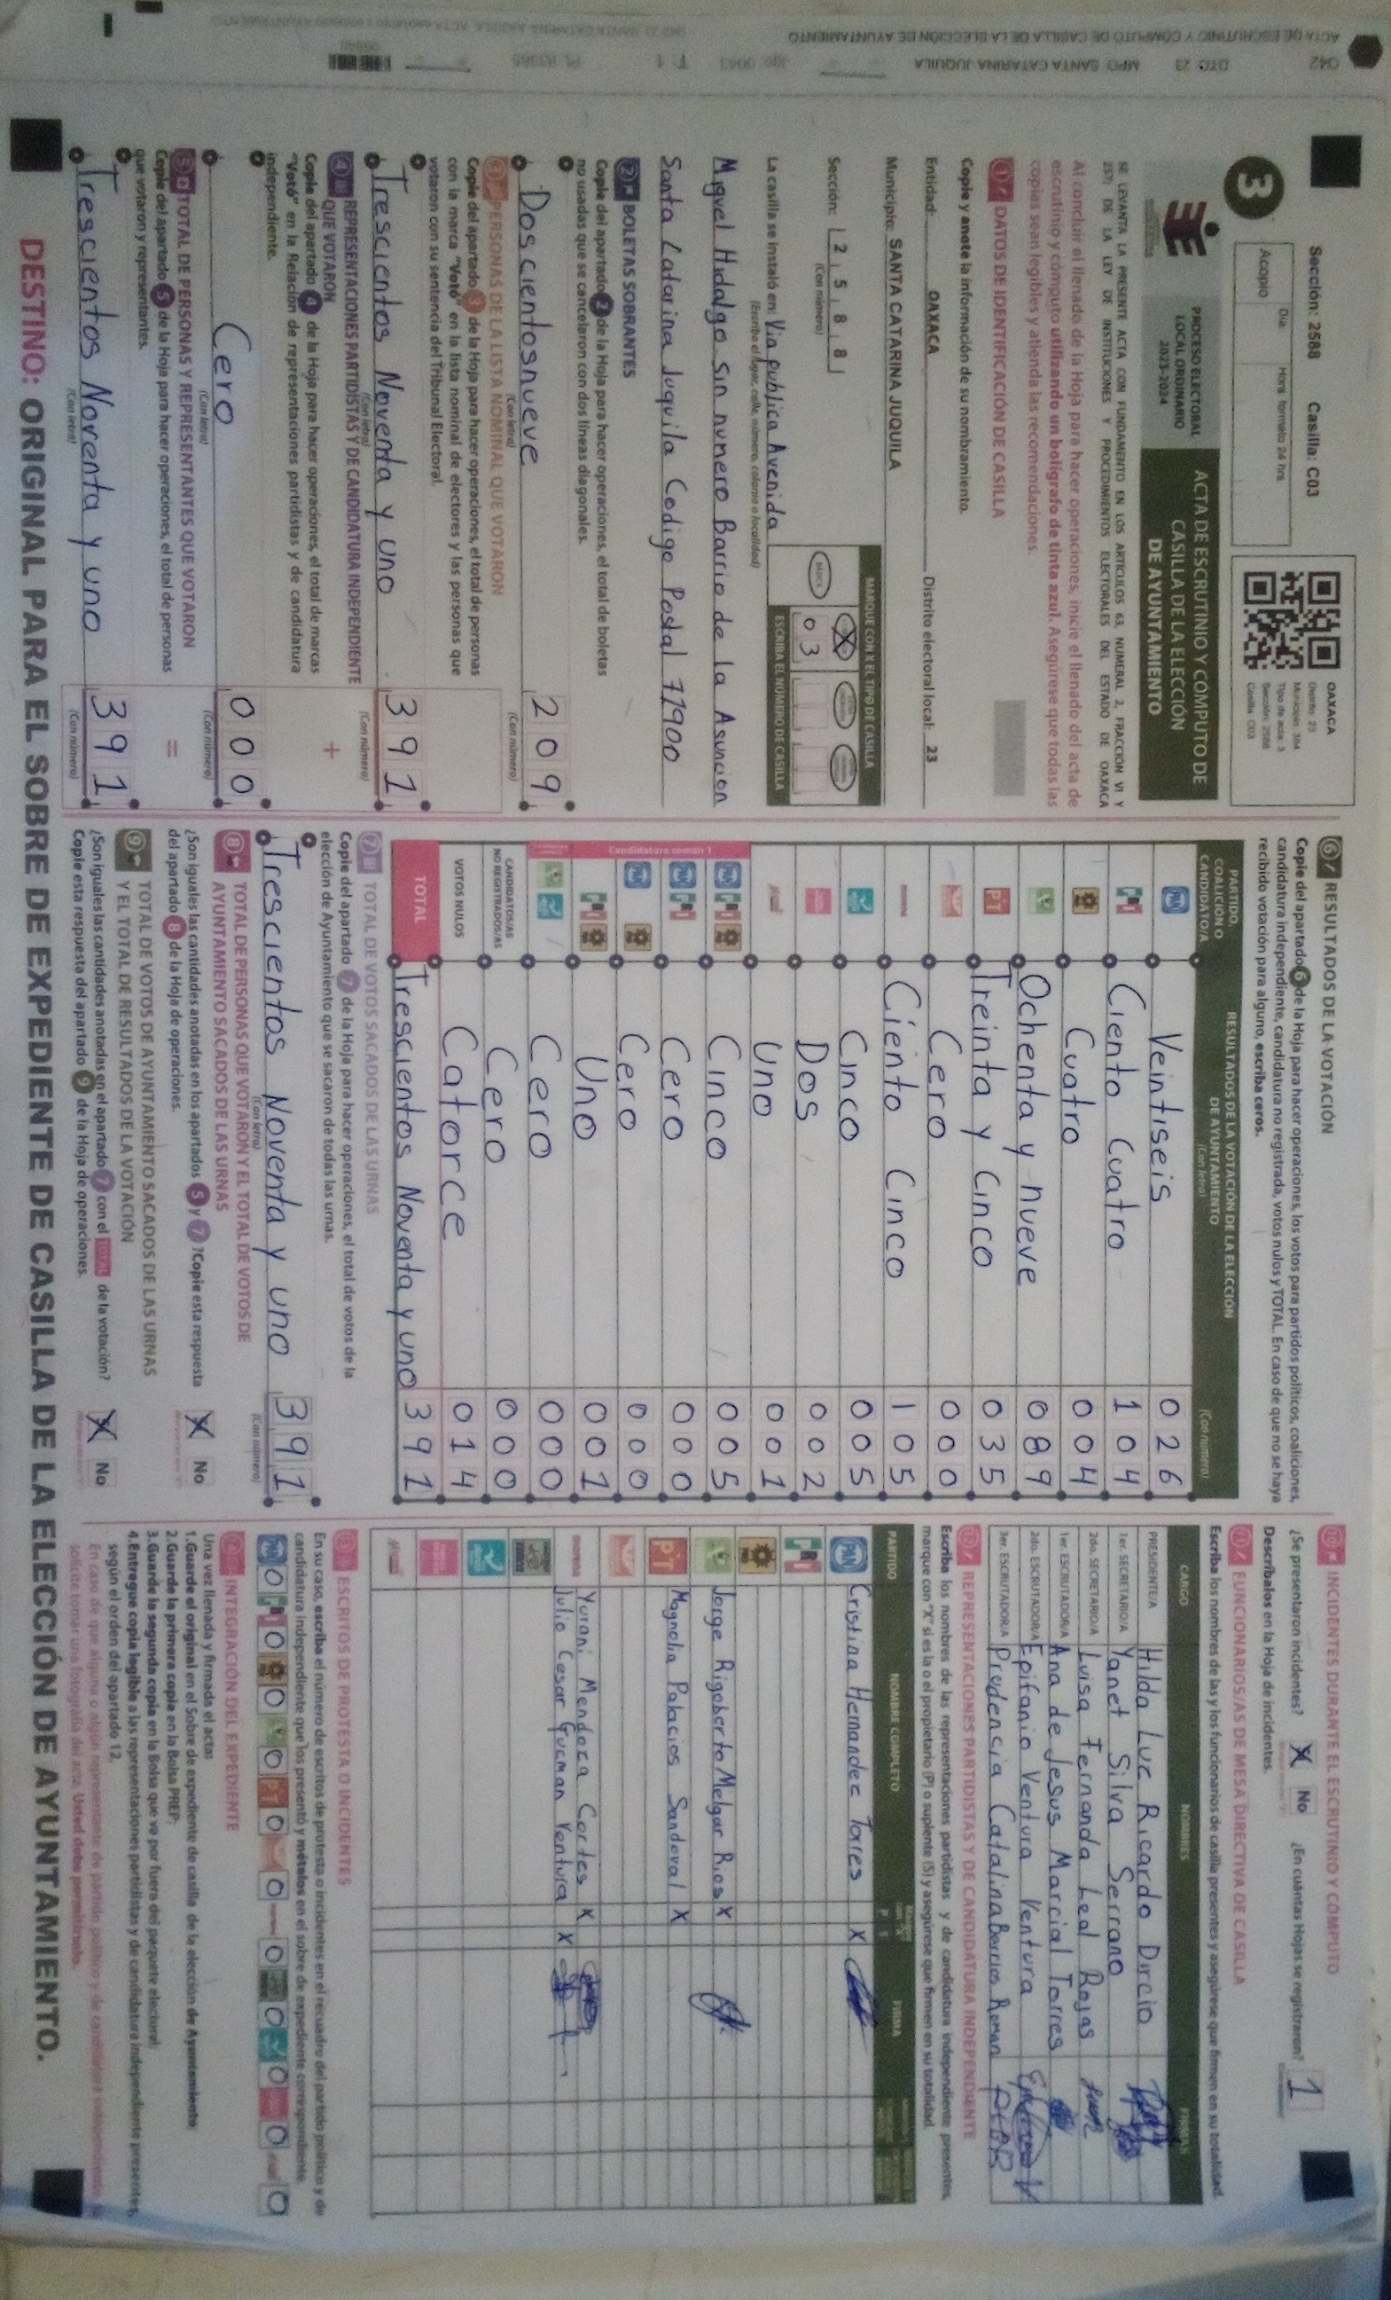 042 DTO 23 MPO SANTA CATARINA JUQUILA
ACTA DE ESCRUTINIO Y CÓMPUTO DE CASILLA DE LA ELECCIÓN DE AYUNTAMIENTO
Sección: 2588 Casilla: C03
3
Día: Hora formato 24 hrs
Acopio
OAXACA
Distrito: 23
Tipo de acta: 3
Sección: 2588
Casilla: C03
PROCESO ELECTORAL
LOCAL ORDINARIO
2023-2024
ACTA DE ESCRUTINIO Y CÓMPUTO DE
CASILLA DE LA ELECCIÓN
DE AYUNTAMIENTO
SE LEVANTA LA PRESENTE ACTA CON FUNDAMENTO EN LOS ARTÍCULOS 63, NUMERAL 2, FRACCIÓN VI Y
257; DE LA LEY DE INSTITUCIONES Y PROCEDIMIENTOS ELECTORALES DEL ESTADO DE OAXACA
Al concluir el llenado de la Hoja para hacer operaciones, inicie el llenado del acta de
escrutinio y cómputo utilizando un bolígrafo de tinta azul. Asegúrese que todas las
copias sean legibles y atienda las recomendaciones.
1 DATOS DE IDENTIFICACIÓN DE CASILLA
Copie y anote la información de su nombramiento.
Entidad: OAXACA Distrito electoral local: 23
Municipio: SANTA CATARINA JUQUILA
Sección: 2 5 8 8
(Con número)
MARQUE CON X EL TIPO DE CASILLA
BÁSICA X
0 3
ESCRIBA EL NÚMERO DE CASILLA
La casilla se instaló en: Via publica Avenida
(Escriba el lugar, calle, número, colonia o localidad)
Miguel Hidalgo sin numero Barrio de la Asunción
Santa Catarina Juquila Codigo Postal 71900
2 BOLETAS SOBRANTES
Copie del apartado 2 de la Hoja para hacer operaciones, el total de boletas
no usadas que se cancelaron con dos líneas diagonales.
Doscientos nueve 2 0 9
(Con letra) (Con número)
3 PERSONAS DE LA LISTA NOMINAL QUE VOTARON
Copie del apartado 3 de la Hoja para hacer operaciones, el total de personas
con la marca "Votó" en la lista nominal de electores y las personas que
votaron con su sentencia del Tribunal Electoral.
Trescientos Noventa y uno 3 9 1
(Con letra) (Con número)
4 REPRESENTACIONES PARTIDISTAS Y DE CANDIDATURA INDEPENDIENTE
QUE VOTARON +
Copie del apartado 4 de la Hoja para hacer operaciones, el total de marcas
"Votó" en la Relación de representaciones partidistas y de candidatura
independiente.
Cero 0 0 0
(Con letra) (Con número)
5 TOTAL DE PERSONAS Y REPRESENTANTES QUE VOTARON =
Copie del apartado 5 de la Hoja para hacer operaciones, el total de personas
que votaron y representantes.
Trescientos Noventa y uno 3 9 1
(Con letra) (Con número)
6 RESULTADOS DE LA VOTACIÓN
Copie del apartado 6 de la Hoja para hacer operaciones, los votos para partidos políticos, coaliciones,
candidatura independiente, candidatura no registrada, votos nulos y TOTAL. En caso de que no se haya
recibido votación para alguno, escriba ceros.
PARTIDO, COALICIÓN O CANDIDATO/A
RESULTADOS DE LA VOTACIÓN DE LA ELECCIÓN
DE AYUNTAMIENTO
(Con letra) (Con número)
PAN Veintiseis 0 2 6
PRI Ciento Cuatro 1 0 4
Cuatro 0 0 4
Ochenta y nueve 0 8 9
PT Treinta y Cinco 0 3 5
Cero 0 0 0
morena Ciento Cinco 1 0 5
Cinco 0 0 5
Dos 0 0 2
Uno 0 0 1
Candidatura común 1
PAN PRI Cinco 0 0 5
PAN PRI Cero 0 0 0
PAN Cero 0 0 0
PRI Uno 0 0 1
Cero 0 0 0
CANDIDATOS/AS NO REGISTRADOS/AS Cero 0 0 0
VOTOS NULOS Catorce 0 1 4
TOTAL Trescientos Noventa y uno 3 9 1
7 TOTAL DE VOTOS SACADOS DE LAS URNAS
Copie del apartado 7 de la Hoja para hacer operaciones, el total de votos de la
elección de Ayuntamiento que se sacaron de todas las urnas.
Trescientos Noventa y uno 3 9 1
(Con letra) (Con número)
8 TOTAL DE PERSONAS QUE VOTARON Y EL TOTAL DE VOTOS DE
AYUNTAMIENTO SACADOS DE LAS URNAS
¿Son iguales las cantidades anotadas en los apartados 5 y 7? Copie esta respuesta
del apartado 8 de la Hoja de operaciones. X No
9 TOTAL DE VOTOS DE AYUNTAMIENTO SACADOS DE LAS URNAS
Y EL TOTAL DE RESULTADOS DE LA VOTACIÓN
¿Son iguales las cantidades anotadas en el apartado 7 con el TOTAL de la votación?
Copie esta respuesta del apartado 9 de la Hoja de operaciones. X No
10 INCIDENTES DURANTE EL ESCRUTINIO Y CÓMPUTO
¿Se presentaron incidentes? X No ¿En cuántas Hojas se registraron? 1
Descríbalos en la Hoja de incidentes.
11 FUNCIONARIOS/AS DE MESA DIRECTIVA DE CASILLA
Escriba los nombres de las y los funcionarios de casilla presentes y asegúrese que firmen en su totalidad.
CARGO NOMBRES FIRMAS
PRESIDENTE/A Hilda Luz Ricardo Dircio
1er. SECRETARIO/A Yanet Silva Serrano
2do. SECRETARIO/A Luisa Fernanda Leal Rojas
1er. ESCRUTADOR/A Ana de Jesus Marcial Torres
2do. ESCRUTADOR/A Epifanio Ventura Ventura
3er. ESCRUTADOR/A Prudencia Catalina Barrios Roman
12 REPRESENTACIONES PARTIDISTAS Y DE CANDIDATURA INDEPENDIENTE
Escriba los nombres de las representaciones partidistas y de candidatura independiente presentes,
marque con "X" si es la o el propietario (P) o suplente (S) y asegúrese que firmen en su totalidad.
PARTIDO NOMBRE COMPLETO P S FIRMA
PAN Cristina Hernandez Torres X
PRI
Jorge Rigoberto Melgar Rios X
PT Magnolia Palacios Sandoval X
morena Yurani Mendoza Cortes X
Julio Cesar Guzman Ventura X
13 ESCRITOS DE PROTESTA O INCIDENTES
En su caso, escriba el número de escritos de protesta o incidentes en el recuadro del partido político y de
candidatura independiente que los presentó y métalos en el sobre de expediente correspondiente.
PAN 0 PRI 0 0 0 PT 0 0 0 0 0 0 0
14 INTEGRACIÓN DEL EXPEDIENTE
Una vez llenada y firmada el acta:
1.Guarde el original en el Sobre de expediente de casilla de la elección de Ayuntamiento;
2.Guarde la primera copia en la Bolsa PREP;
3.Guarde la segunda copia en la Bolsa que va por fuera del paquete electoral;
4.Entregue copia legible a las representaciones partidistas y de candidatura independiente presentes,
según el orden del apartado 12.
En caso de que alguna o algún representante de partido político y de candidatura independiente
solicite tomar una fotografía del acta, Usted debe permitírselo.
DESTINO: ORIGINAL PARA EL SOBRE DE EXPEDIENTE DE CASILLA DE LA ELECCIÓN DE AYUNTAMIENTO.